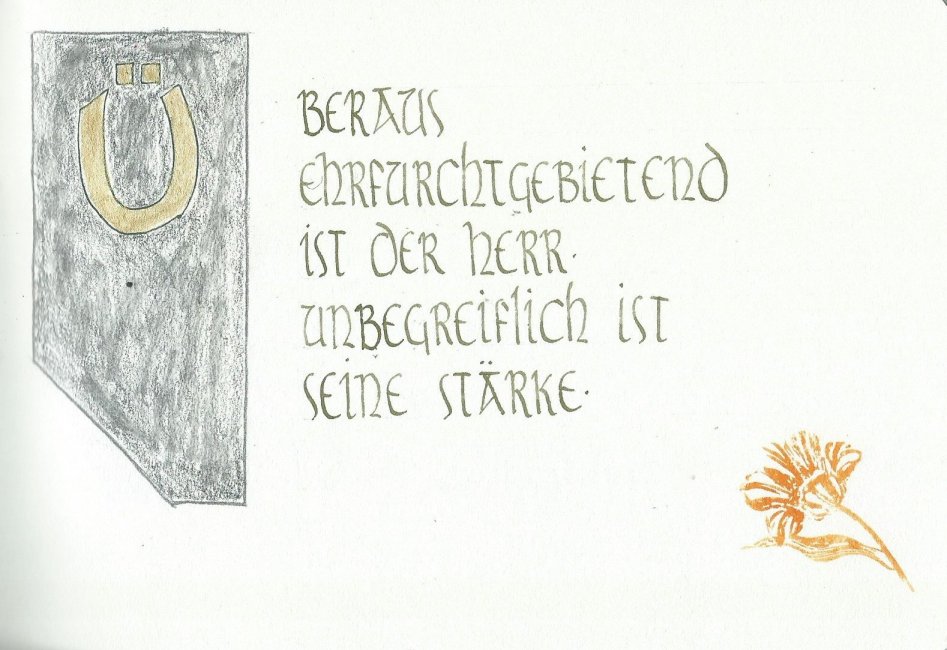 ÜBERAUS
EHRFURCHTGEBIETEND
IST DER HERR.
UNBEGREIFLICH IST
SEINE STÄRKE.